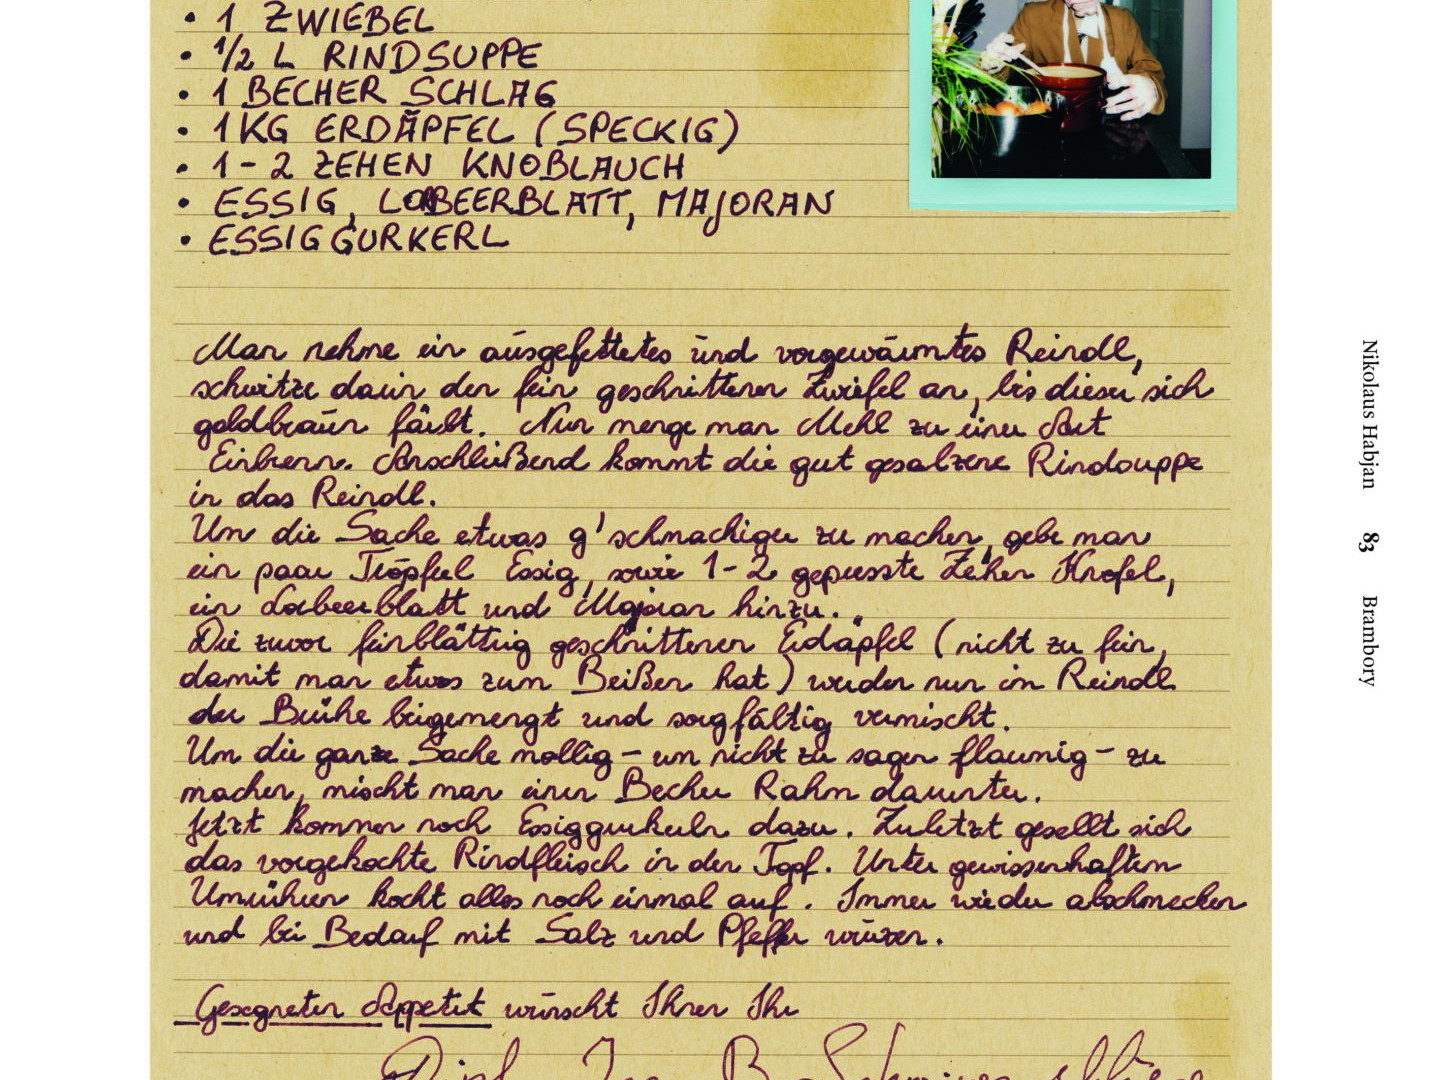 • 1 ZWIEBEL
• 1/2 L RINDSUPPE
• 1 BECHER SCHLAG
• 1 KG ERDÄPFEL (SPECKIG)
• 1-2 ZEHEN KNOBLAUCH
• ESSIG, LORBEERBLATT, MAJORAN
• ESSIGGURKERL
Man nehme ein ausgefettetes und vorgewärmtes Reindl,
schwitze darin den fein geschnittenen Zwiefel an, bis dieser sich
goldbraun färbt. Nun menge man Mehl zu einer Art
Einbrenn. Anschließend kommt die gut gesalzene Rindsuppe
in das Reindl.
Um die Sache etwas g'schmachiger zu machen, gebe man
ein paar Tröpferl Essig, sowie 1-2 gepresste Zehen Knofel,
ein Lorbeerblatt und Majoran hinzu.
Die zuvor feinblättrig geschnittenen Erdäpfel (nicht zu fein,
damit man etwas zum Beißen hat) werden nun im Reindl
der Brühe beigemengt und sorgfältig vermischt.
Um die ganze Sache mollig – um nicht zu sagen flaumig – zu
machen, mischt man einen Becher Rahm darunter.
Jetzt kommen noch Essiggurkerln dazu. Zuletzt gesellt sich
das vorgekochte Rindfleisch in den Topf. Unter gewissenhaftem
Umrühren kocht alles noch einmal auf. Immer wieder abschmecken
und bei Bedarf mit Salz und Pfeffer würzen.
Gesegneten Appetit wünscht Ihnen Ihr
Nikolaus Habjan 83 Brambory